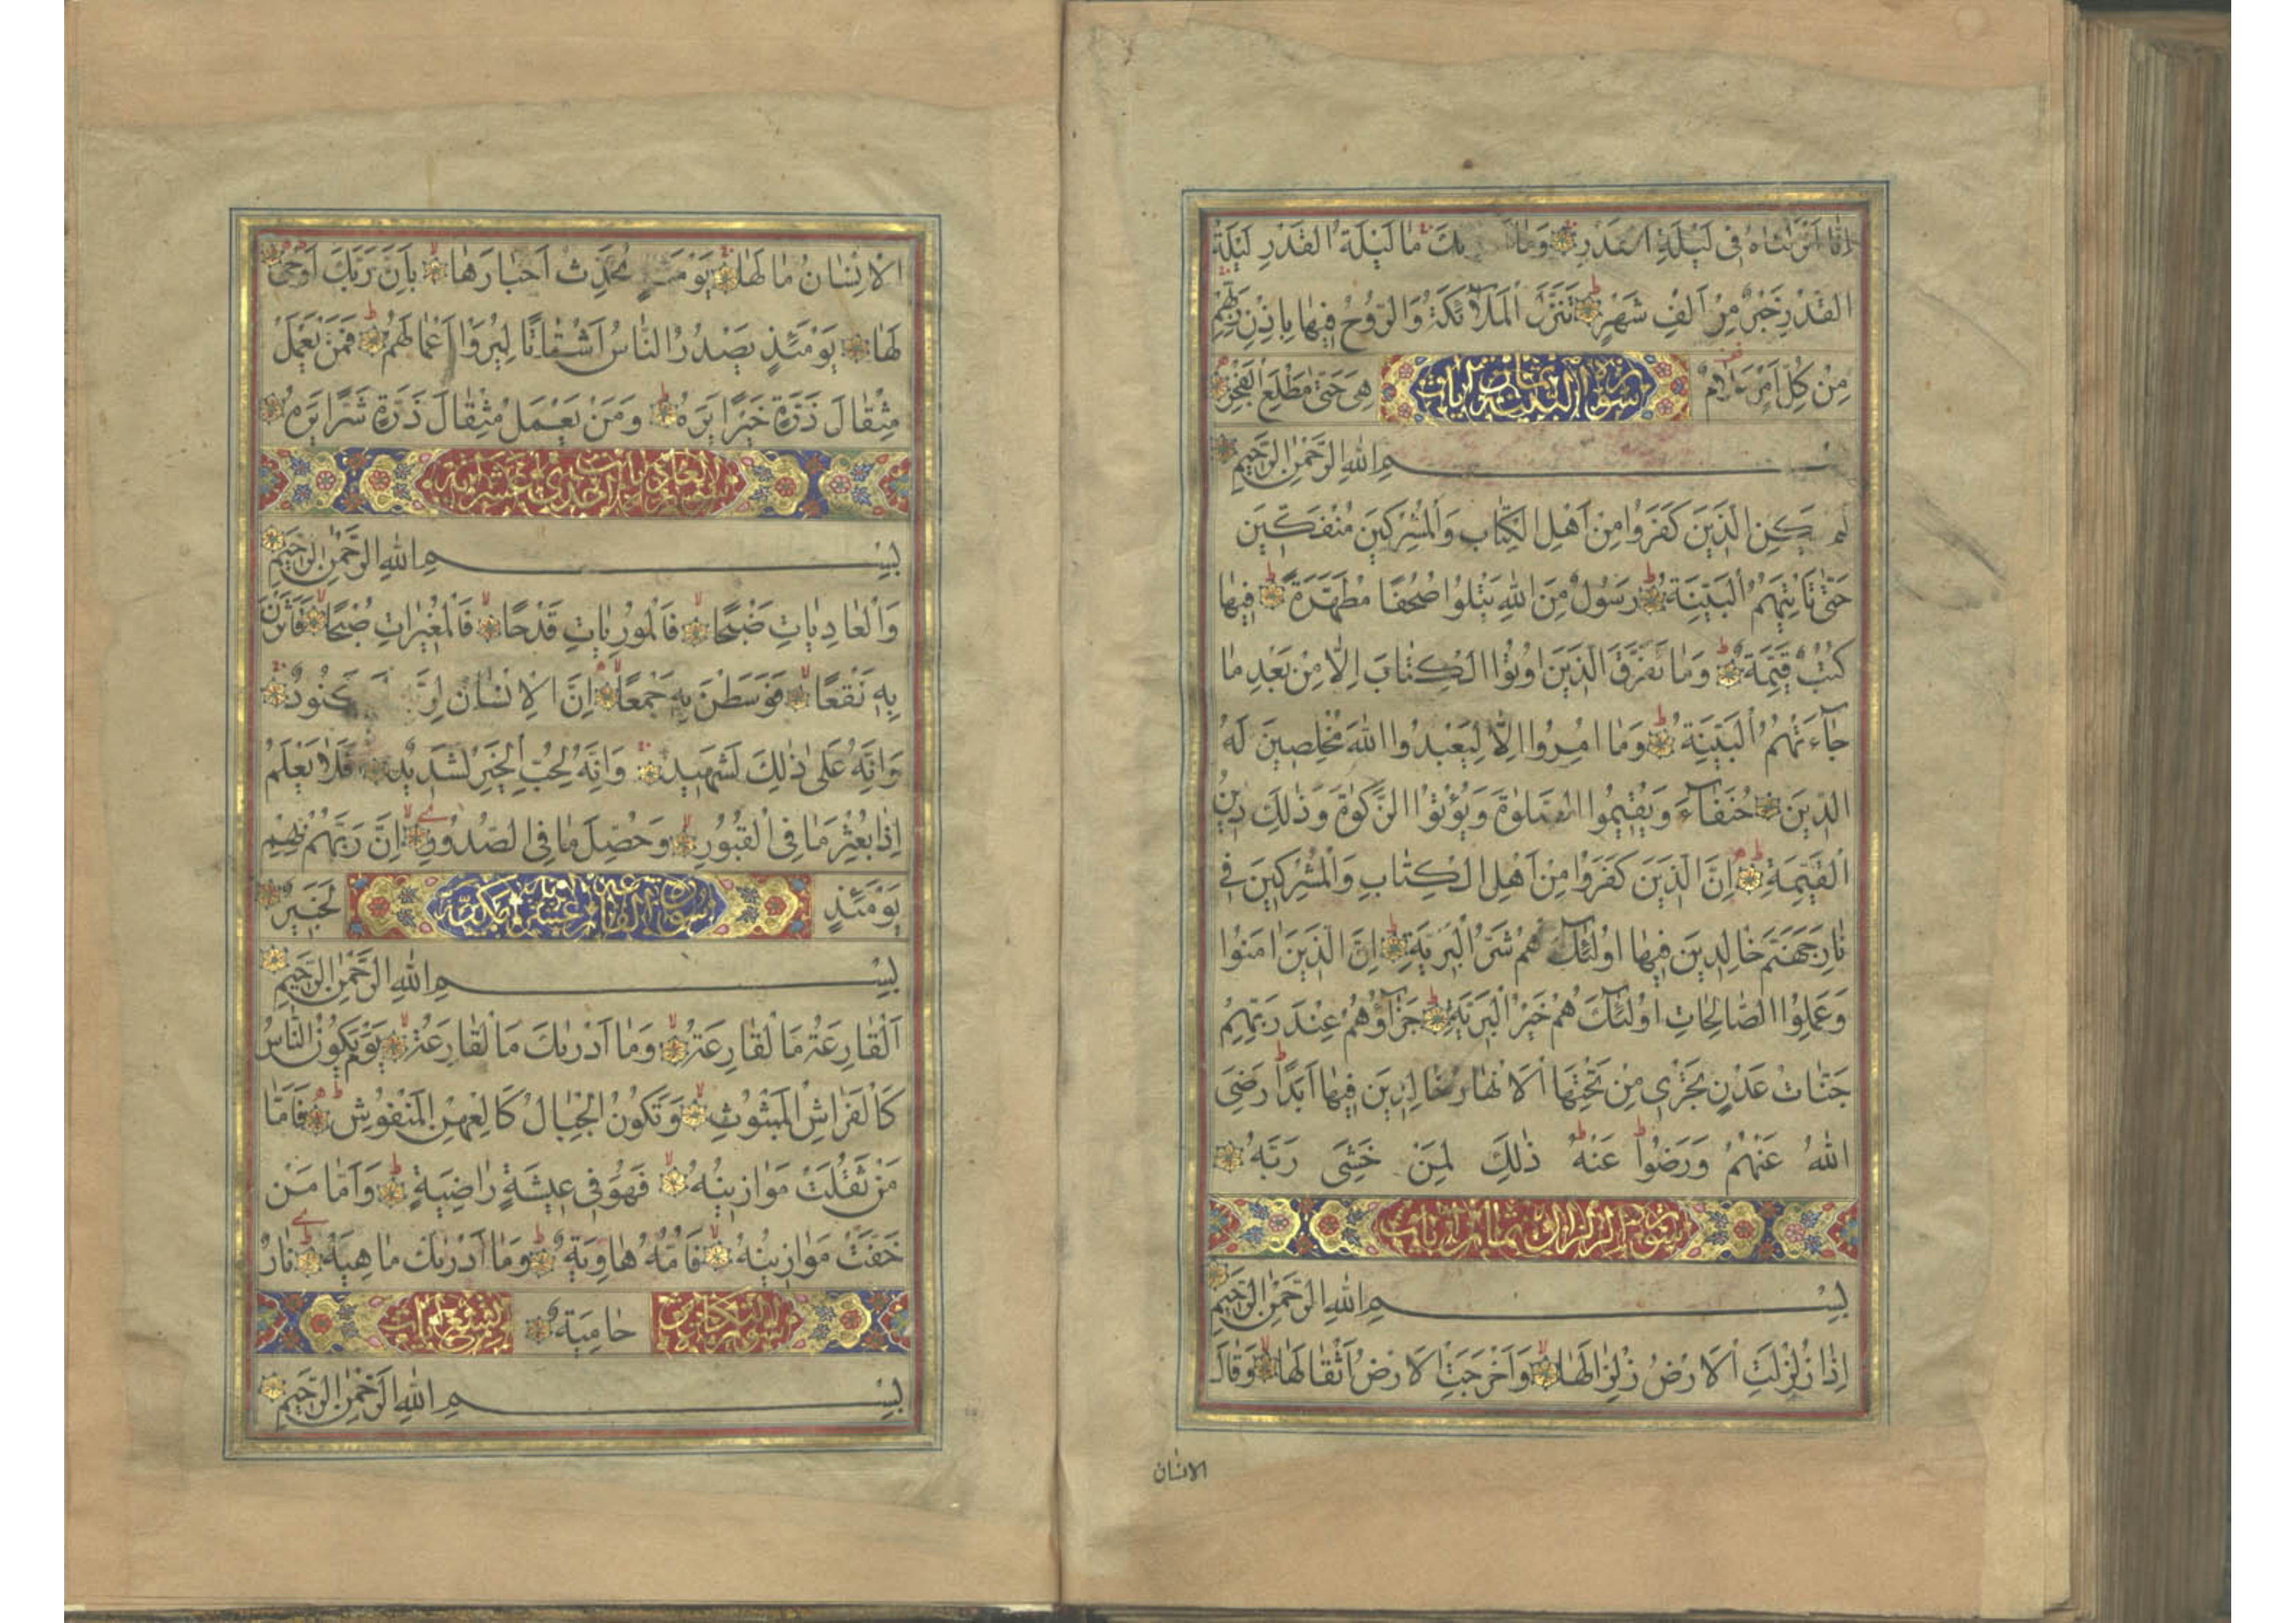 اِنَّا اَنْزَلْنَاهُ فِى لَيْلَةِ الْقَدْرِ وَمَا مَا لَيْلَةُ الْقَدْرِ لَيْلَةُ
الْقَدْرِ خَيْرٌ مِنْ اَلْفِ شَهْرٍ تَنَزَّلُ الْمَلٰٓائِكَةُ وَالرُّوحُ فِيهَا بِاِذْنِ رَبِّهِمْ
مِنْ كُلِّ اَمْرٍ سَلَامٌ سورة البينة ثمان آيات هِىَ حَتّٰى مَطْلَعِ الْفَجْرِ
ـمِ اللّٰهِ الرَّحْمٰنِ الرَّحِيمِ
لَمْ يَكُنِ الَّذِينَ كَفَرُوا مِنْ اَهْلِ الْكِتَابِ وَالْمُشْرِكِينَ مُنْفَكِّينَ
حَتّٰى تَاْتِيَهُمُ الْبَيِّنَةُ رَسُولٌ مِنَ اللّٰهِ يَتْلُوا صُحُفًا مُطَهَّرَةً فِيهَا
كُتُبٌ قَيِّمَةٌ وَمَا تَفَرَّقَ الَّذِينَ اُوتُوا الْكِتَابَ اِلَّا مِنْ بَعْدِ مَا
جَآءَتْهُمُ الْبَيِّنَةُ وَمَا اُمِرُوا اِلَّا لِيَعْبُدُوا اللّٰهَ مُخْلِصِينَ لَهُ
الدِّينَ حُنَفَآءَ وَيُقِيمُوا الصَّلٰوةَ وَيُؤْتُوا الزَّكٰوةَ وَذٰلِكَ دِينُ
الْقَيِّمَةِ اِنَّ الَّذِينَ كَفَرُوا مِنْ اَهْلِ الْكِتَابِ وَالْمُشْرِكِينَ فِى
نَارِ جَهَنَّمَ خَالِدِينَ فِيهَا اُولٰٓئِكَ هُمْ شَرُّ الْبَرِيَّةِ اِنَّ الَّذِينَ اٰمَنُوا
وَعَمِلُوا الصَّالِحَاتِ اُولٰٓئِكَ هُمْ خَيْرُ الْبَرِيَّةِ جَزَآؤُهُمْ عِنْدَ رَبِّهِمْ
جَنَّاتُ عَدْنٍ تَجْرِى مِنْ تَحْتِهَا الْاَنْهَارُ خَالِدِينَ فِيهَا اَبَدًا رَضِىَ
اللّٰهُ عَنْهُمْ وَرَضُوا عَنْهُ ذٰلِكَ لِمَنْ خَشِىَ رَبَّهُ
سورة الزلزال ثمان آيات
بِسْمِ اللّٰهِ الرَّحْمٰنِ الرَّحِيمِ
اِذَا زُلْزِلَتِ الْاَرْضُ زِلْزَالَهَا وَاَخْرَجَتِ الْاَرْضُ اَثْقَالَهَا وَقَالَ
الانسان
الْاِنْسَانُ مَا لَهَا يَوْمَئِذٍ تُحَدِّثُ اَخْبَارَهَا بِاَنَّ رَبَّكَ اَوْحٰى
لَهَا يَوْمَئِذٍ يَصْدُرُ النَّاسُ اَشْتَاتًا لِيُرَوْا اَعْمَالَهُمْ فَمَنْ يَعْمَلْ
مِثْقَالَ ذَرَّةٍ خَيْرًا يَرَهُ وَمَنْ يَعْمَلْ مِثْقَالَ ذَرَّةٍ شَرًّا يَرَهُ
سورة العاديات احدى عشر آية
بِسْمِ اللّٰهِ الرَّحْمٰنِ الرَّحِيمِ
وَالْعَادِيَاتِ ضَبْحًا فَالْمُورِيَاتِ قَدْحًا فَالْمُغِيرَاتِ صُبْحًا فَاَثَرْنَ
بِهِ نَقْعًا فَوَسَطْنَ بِهِ جَمْعًا اِنَّ الْاِنْسَانَ كَنُودٌ
وَاِنَّهُ عَلٰى ذٰلِكَ لَشَهِيدٌ وَاِنَّهُ لِحُبِّ الْخَيْرِ لَشَدِيدٌ اَفَلَا يَعْلَمُ
اِذَا بُعْثِرَ مَا فِى الْقُبُورِ وَحُصِّلَ مَا فِى الصُّدُورِ اِنَّ رَبَّهُمْ بِهِمْ
يَوْمَئِذٍ سورة القارعة لَخَبِيرٌ
بِسْمِ اللّٰهِ الرَّحْمٰنِ الرَّحِيمِ
اَلْقَارِعَةُ مَا الْقَارِعَةُ وَمَا اَدْرٰيكَ مَا الْقَارِعَةُ يَوْمَ يَكُونُ النَّاسُ
كَالْفَرَاشِ الْمَبْثُوثِ وَتَكُونُ الْجِبَالُ كَالْعِهْنِ الْمَنْفُوشِ فَاَمَّا
مَنْ ثَقُلَتْ مَوَازِينُهُ فَهُوَ فِى عِيشَةٍ رَاضِيَةٍ وَاَمَّا مَنْ
خَفَّتْ مَوَازِينُهُ فَاُمُّهُ هَاوِيَةٌ وَمَا اَدْرٰيكَ مَا هِيَهْ نَارٌ
سورة التكاثر حَامِيَةٌ تسع آيات
بِسْمِ اللّٰهِ الرَّحْمٰنِ الرَّحِيمِ